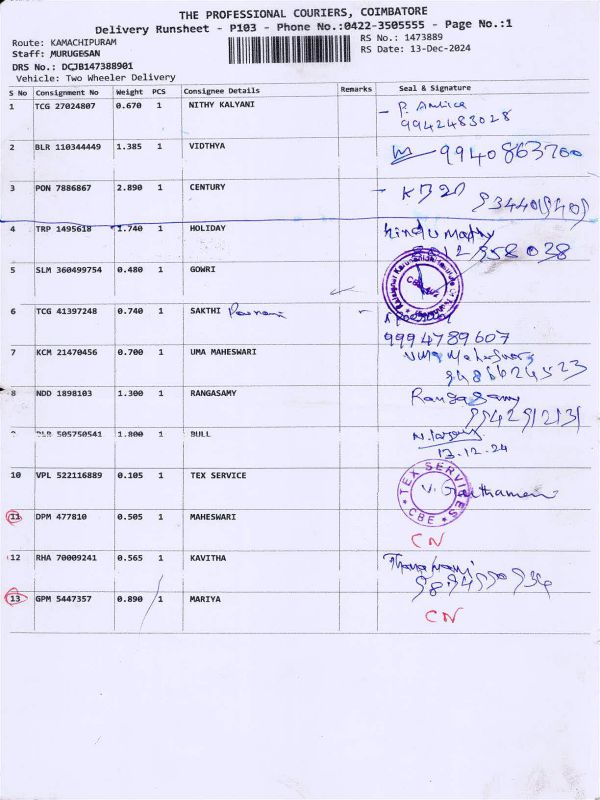 THE PROFESSIONAL COURIERS, COIMBATORE
Delivery Runsheet - P103 - Phone No.:0422-3505555 - Page No.:1
Route: KAMACHIPURAM
RS No.: 1473889
Staff: MURUGESAN
RS Date: 13-Dec-2024
DRS No.: DCJB147388901
Vehicle: Two Wheeler Delivery
S No Consignment No Weight PCS Consignee Details Remarks Seal & Signature
1 TCG 27024807 0.670 1 NITHY KALYANI
9942483028
2 BLR 110344449 1.385 1 VIDTHYA
9940863700
3 PON 7886867 2.890 1 CENTURY
4 TRP 1495618 1.740 1 HOLIDAY
5 SLM 360499754 0.480 1 GOWRI
6 TCG 41397248 0.740 1 SAKTHI
9994789607
7 KCM 21470456 0.700 1 UMA MAHESWARI Uma Maheswari
9486624523
8 NDD 1898103 1.300 1 RANGASAMY Rangasamy
9 BLR 505750541 1.800 1 BULL
13.12.24
10 VPL 522116889 0.105 1 TEX SERVICE TEX SERVICES CBE
11 DPM 477810 0.505 1 MAHESWARI
CN
12 RHA 70009241 0.565 1 KAVITHA
13 GPM 5447357 0.890 1 MARIYA
CN